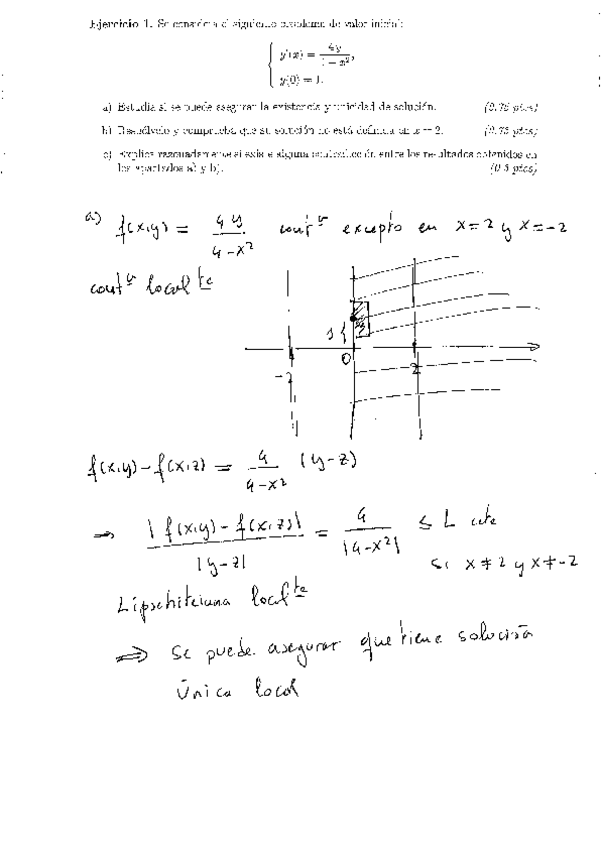 Ejercicio 1. Se considera el siguiente problema de valor inicial:
y'(x) = 4y / 4 − x²,
y(0) = 1.
a) Estudia si se puede asegurar la existencia y unicidad de solución. (0.75 ptos)
b) Resuélvelo y comprueba que su solución no está definida en x = 2. (0.75 ptos)
c) Explica razonadamente si existe alguna contradicción entre los resultados obtenidos en
los apartados a) y b). (0.5 ptos)
a) f(x,y) = 4y / 4-x² contª excepto en x=2 y x=-2
contª localte
1
-2 0 2
f(x,y) - f(x,z) = 4 / 4-x² (y-z)
→ |f(x,y) - f(x,z)| / |y-z| = 4 / |4-x²| ≤ L cte
si x≠2 y x≠-2
Lipschitciana localte
⇒ se puede asegurar que tiene solución
única local